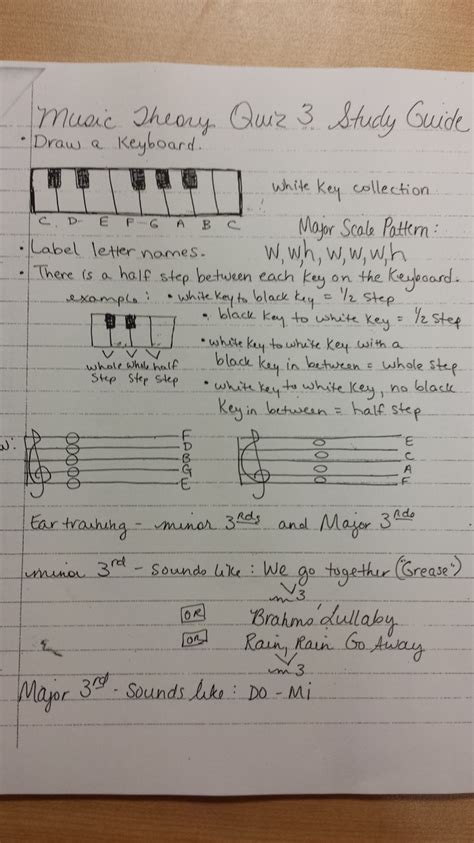 Music Theory Quiz 3 Study Guide
• Draw a Keyboard.
White Key collection
C D E F G A B C
Major Scale Pattern:
• Label letter names. W, W, h, W, W, W, h
• There is a half step between each key on the Keyboard.
example: • white key to black key = 1/2 step
• black key to white key = 1/2 step
• white key to white key with a
black key in between = whole step
whole whole half
step step step
• white key to white key, no black
key in between = half step
F
D
B
G
E
E
C
A
F
Ear training - minor 3rds and Major 3rds
minor 3rd - sounds like: We go together ("Grease")
m3
OR Brahms' Lullaby
OR Rain, Rain Go Away
m3
Major 3rd - Sounds like: DO - Mi